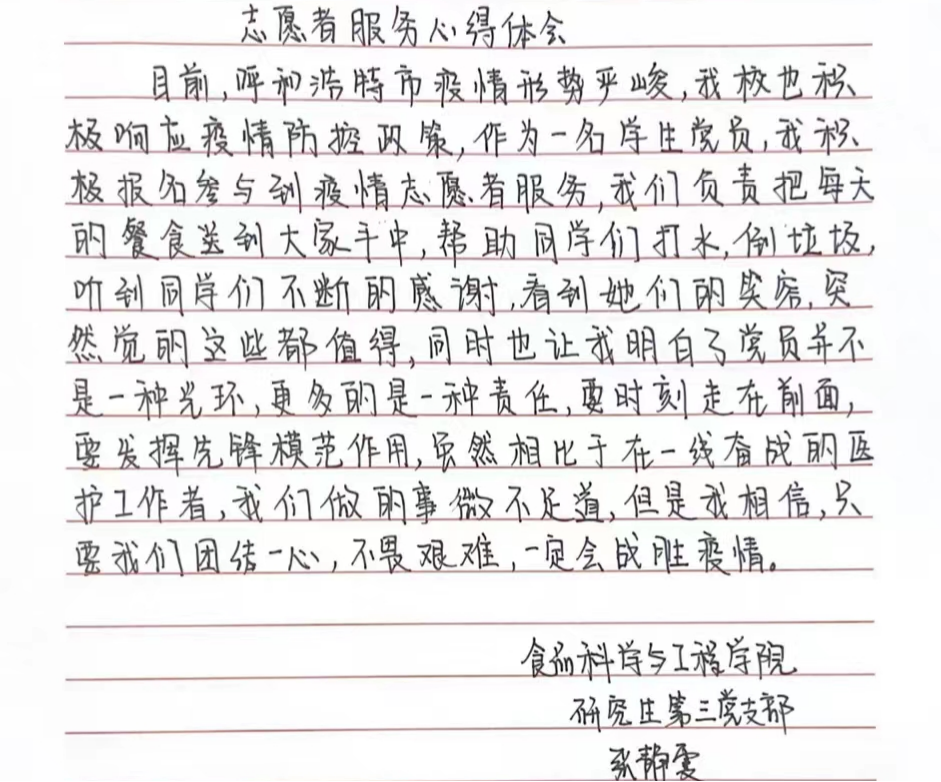 志愿者服务心得体会
目前,呼和浩特市疫情形势严峻,我校也积
极响应疫情防控政策,作为一名学生党员,我积
极报名参与到疫情志愿者服务,我们负责把每天
的餐食送到大家手中,帮助同学们打水,倒垃圾,
听到同学们不断的感谢,看到她们的笑容,突
然觉的这些都值得,同时也让我明白了党员并不
是一种光环,更多的是一种责任,要时刻走在前面,
要发挥先锋模范作用,虽然相比于在一线奋战的医
护工作者,我们做的事微不足道,但是我相信,只
要我们团结一心,不畏艰难,一定会战胜疫情。
食品科学与工程学院
研究生第三党支部
张静雯